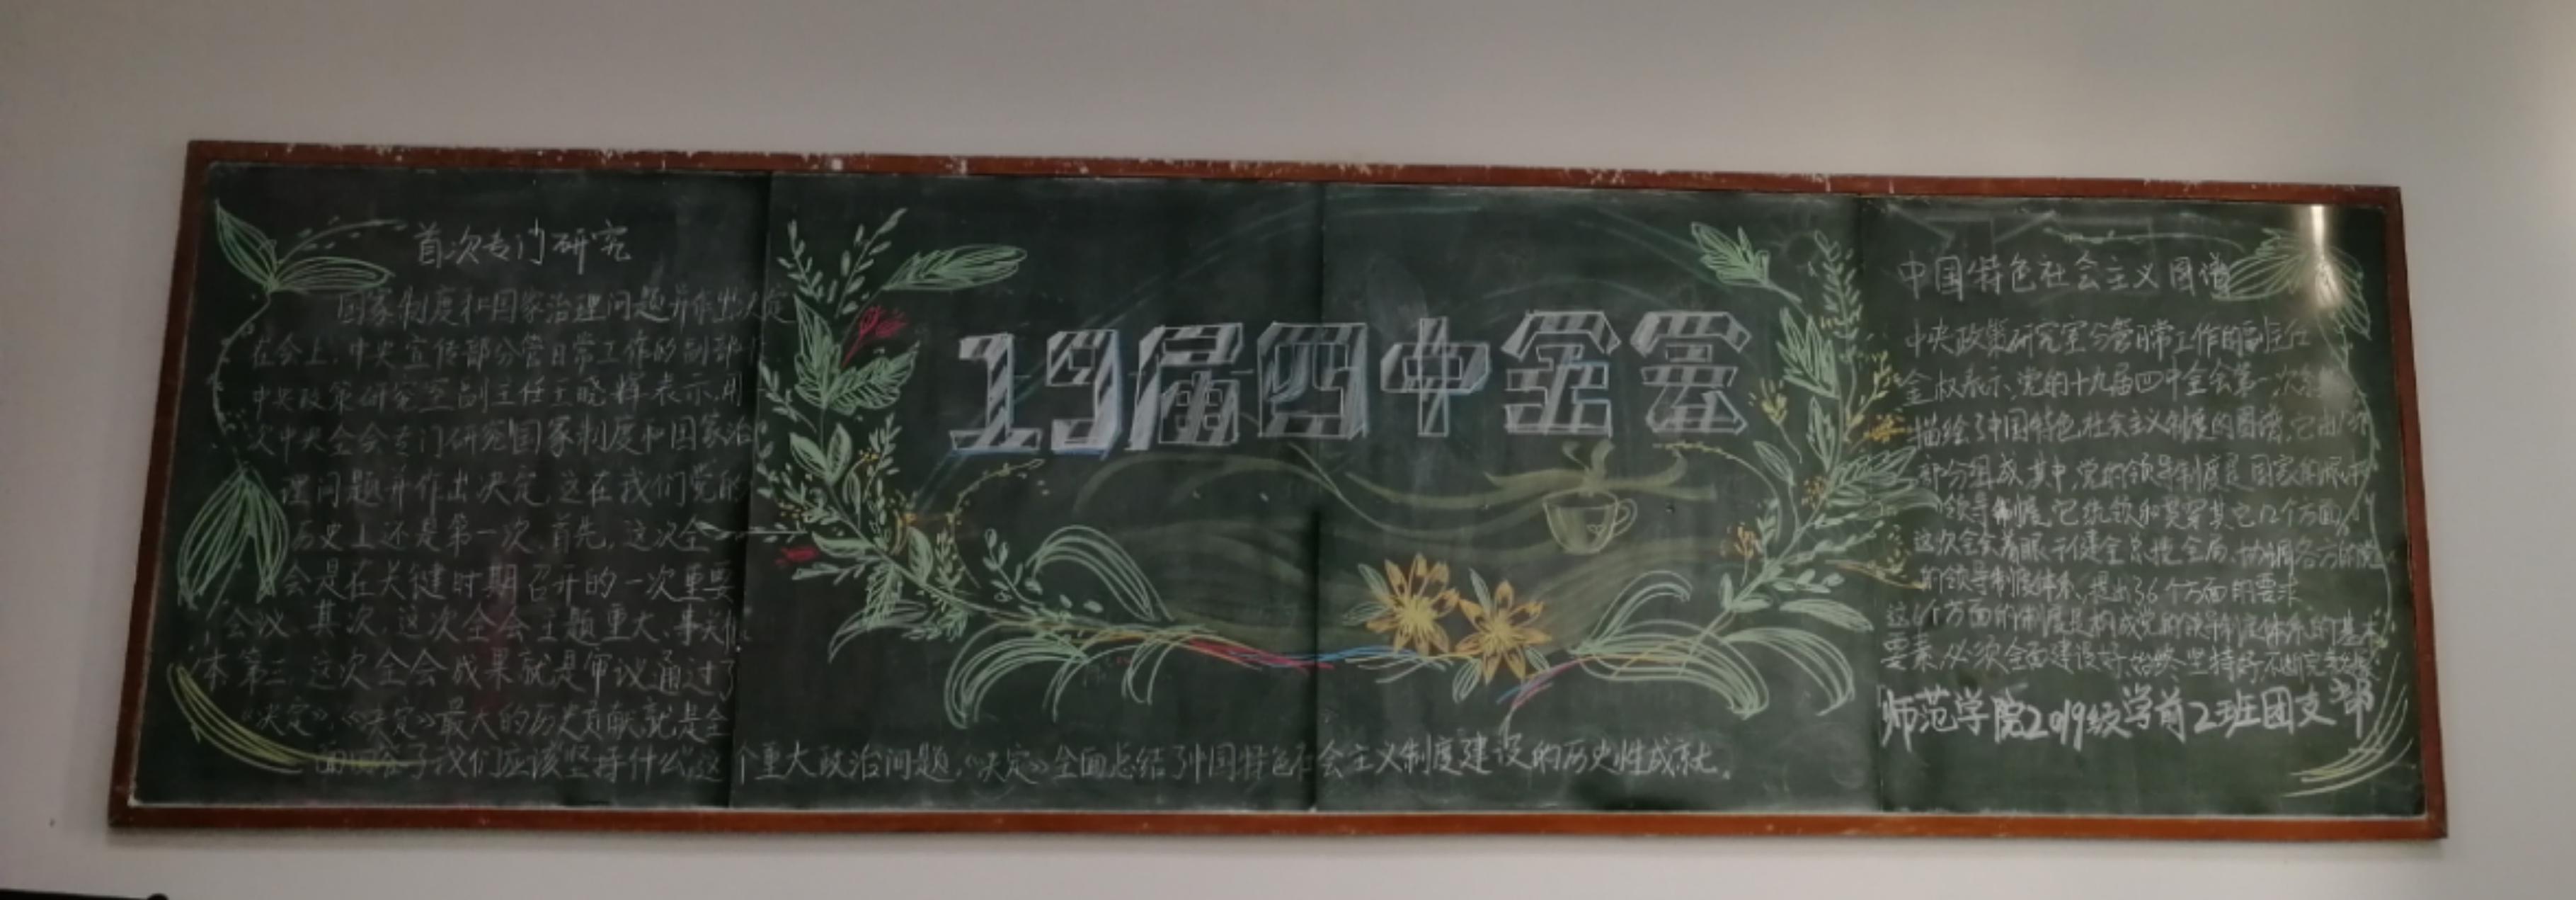 首次专门研究
国家制度和国家治理问题并作出决定
在会上,中央宣传部分管日常工作的副部
中央政策研究室副主任王晓辉表示,用
次中央全会专门研究国家制度和国家治
理问题并作出决定,这在我们党的
历史上还是第一次,首先,这次全
会是在关键时期召开的一次重要
会议,其次,这次全会主题重大、事关
本第三,这次全会成果就是审议通过了
《决定》,《决定》最大的历史贡献就是全
面回答了我们应该坚持什么这个重大政治问题,《决定》全面总结了中国特色社会主义制度建设的历史性成就。
19届四中全会
中国特色社会主义图谱
中央政策研究室分管日常工作的副主任
金权表示,党的十九届四中全会第一次
描绘了中国特色社会主义制度的图谱,它由
部分组成,其中,党的领导制度是国家的根本
领导制度,它统领和贯穿其它12个方面,
这次全会着眼于健全总揽全局、协调各方的党
的领导制度体系,提出36个方面的要求
这6个方面的制度是构成党的领导制度体系的基本
要素,必须全面建设好,始终坚持好,不断完善
师范学院2019级学前2班团支部